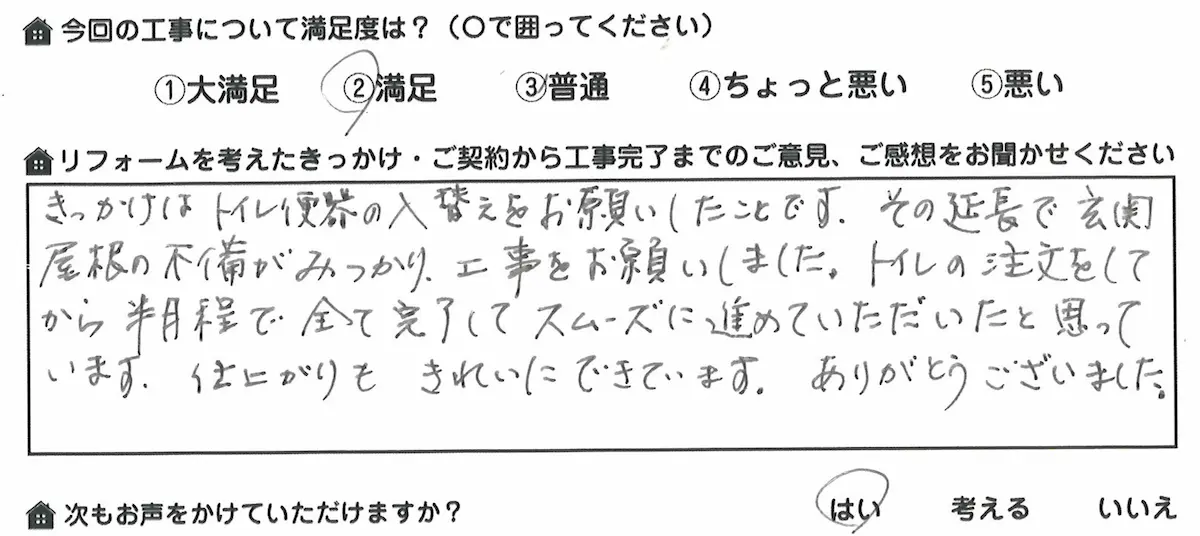 今回の工事について満足度は？（〇で囲ってください）
①大満足 ②満足 ③普通 ④ちょっと悪い ⑤悪い
リフォームを考えたきっかけ・ご契約から工事完了までのご意見、ご感想をお聞かせください
きっかけはトイレ便器の入替えをお願いしたことです. その延長で玄関
屋根の不備がみつかり、工事をお願いしました。トイレの注文をして
から半月程で全て完了してスムーズに進めていただいたと思って
います. 仕上がりも きれいにできています. ありがとうございました.
次もお声をかけていただけますか？ はい 考える いいえ